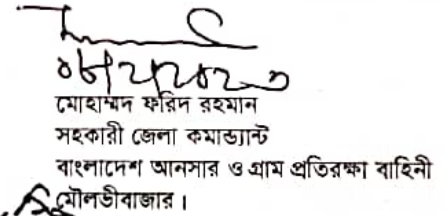 মোহাম্মদ ফরিদ রহমান
সহকারী জেলা কমান্ড্যান্ট
বাংলাদেশ আনসার ও গ্রাম প্রতিরক্ষা বাহিনী
মৌলভীবাজার।